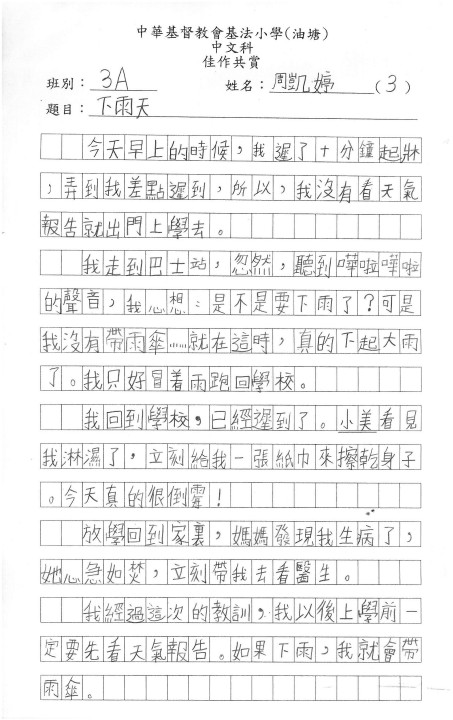 中華基督教會基法小學(油塘)
中文科
佳作共賞
班別：3A 姓名：周凱婷(3)
題目：下雨天
今天早上的時候，我遲了十分鐘起牀
，弄到我差點遲到，所以，我沒有看天氣
報告就出門上學去。
我走到巴士站，忽然，聽到嘩啦嘩啦
的聲音，我心想：是不是要下雨了？可是
我沒有帶雨傘……就在這時，真的下起大雨
了。我只好冒着雨跑回學校。
我回到學校，已經遲到了。小美看見
我淋濕了，立刻給我一張紙巾來擦乾身子
。今天真的很倒霉！
放學回到家裏，媽媽發現我生病了，
她心急如焚，立刻帶我去看醫生。
我經過這次的教訓，我以後上學前一
定要先看天氣報告。如果下雨，我就會帶
雨傘。